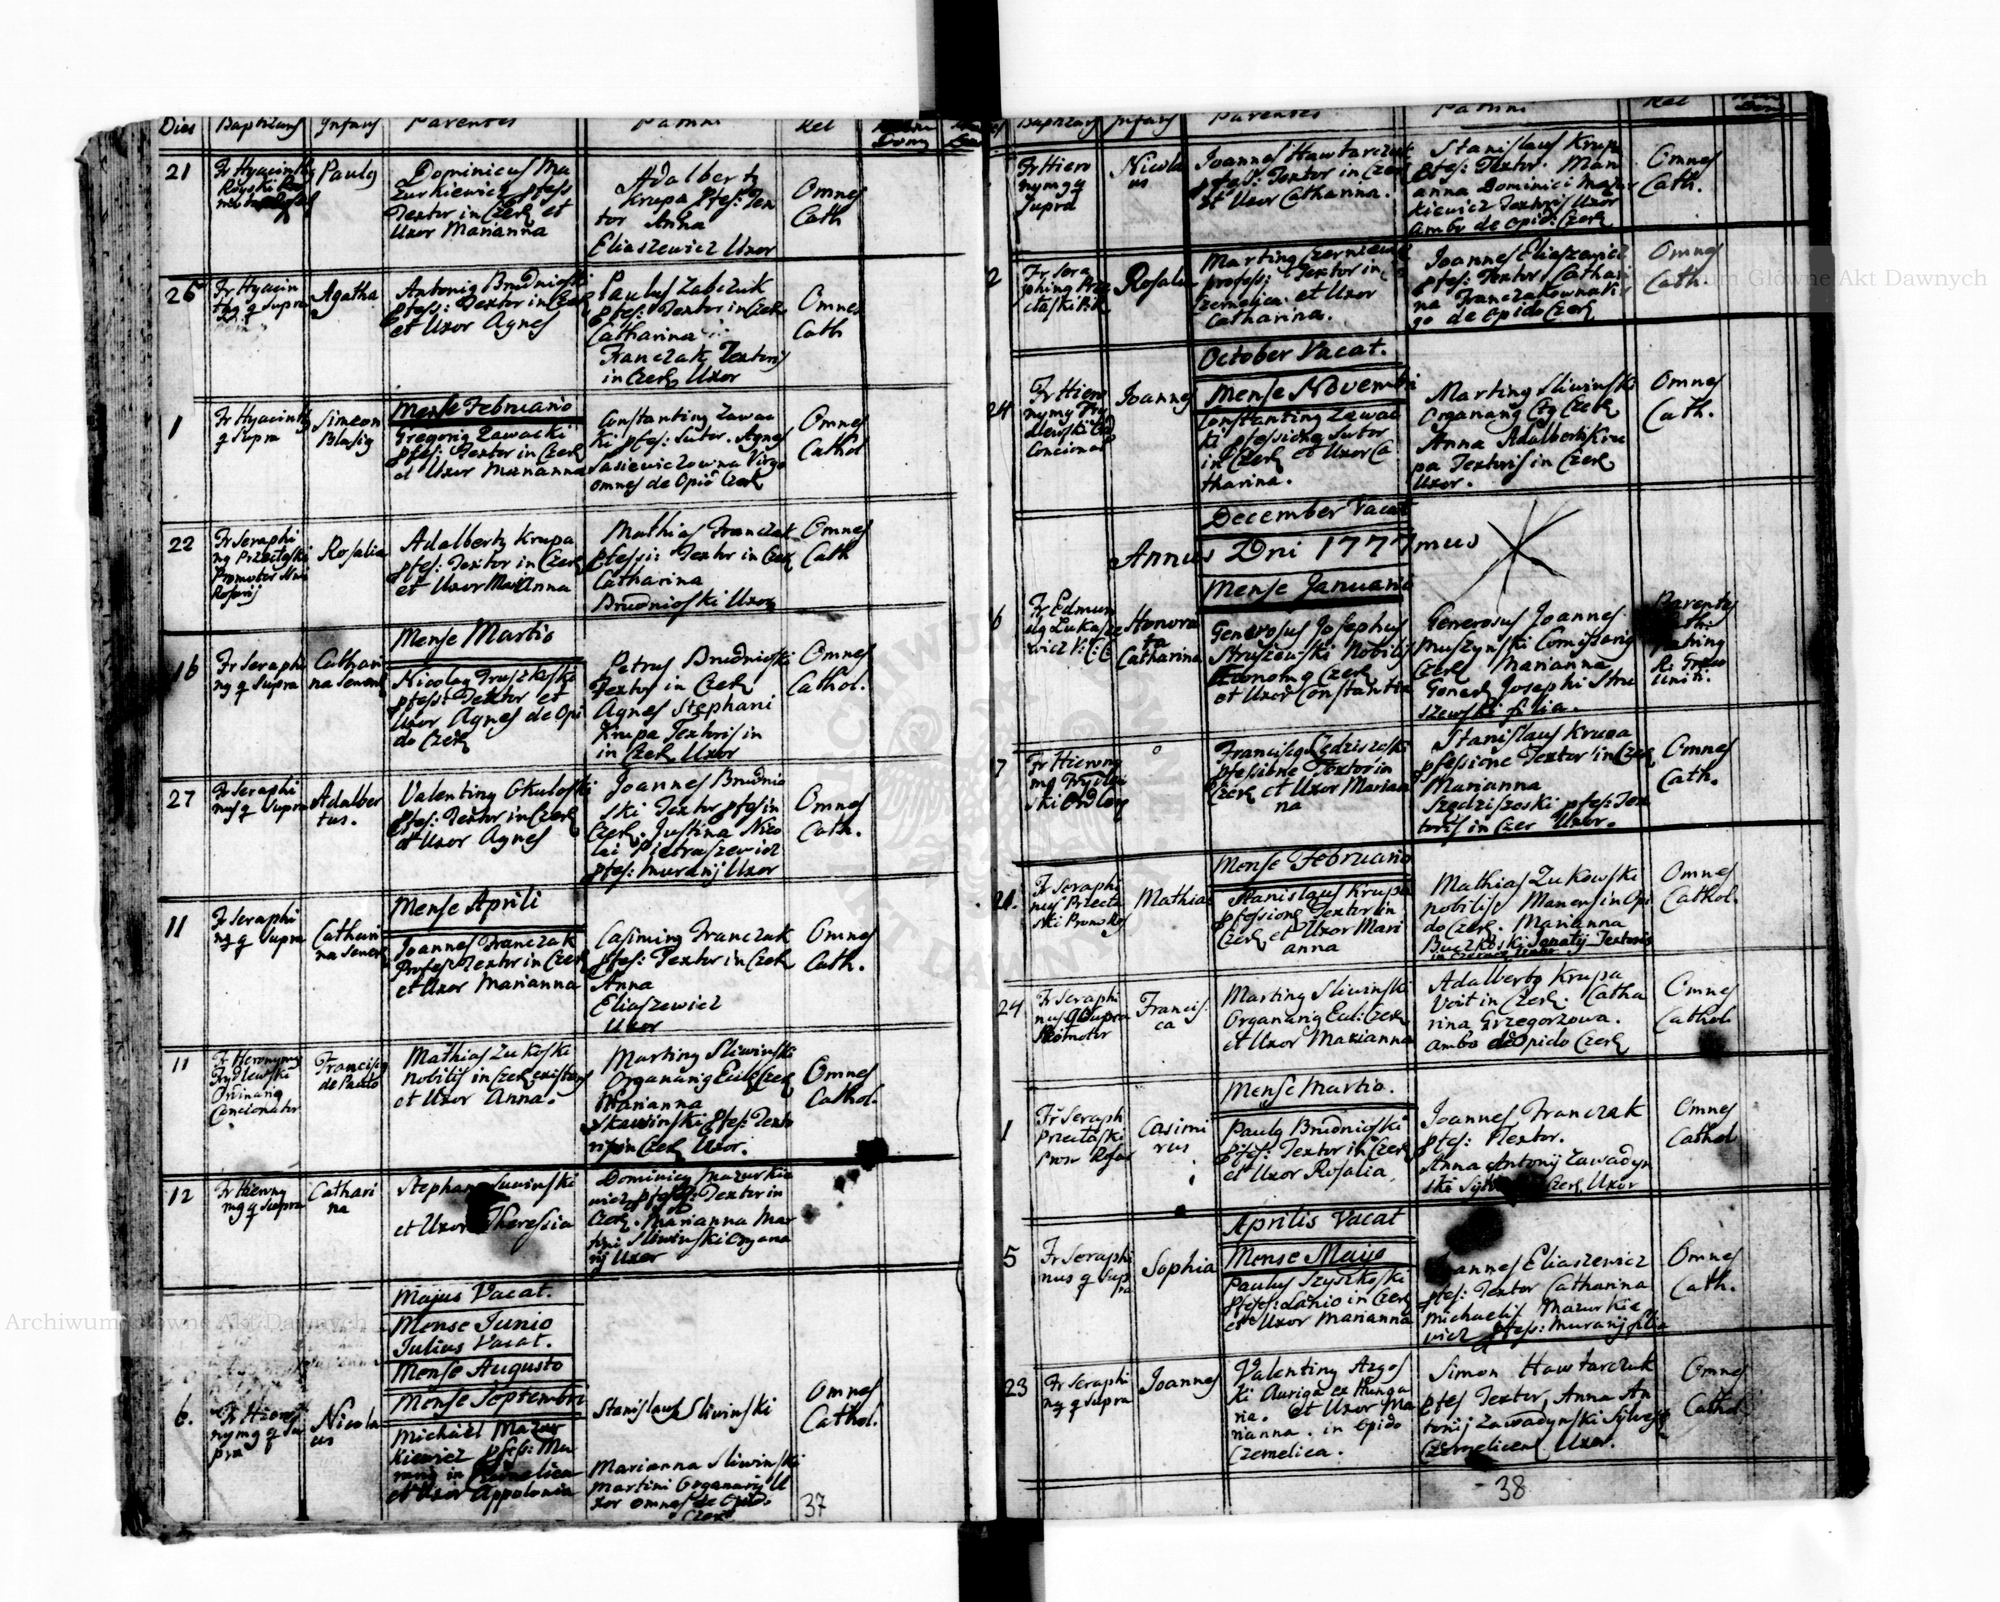 Dies Baptizans Infans Parentes Patrini Rel
21
Fr Hyacinthus
Paulus
Dominicus Ma
zurkiewicz pfess
Textor in Czer et
Uxor Marianna
Adalbertus
Krupa pfes: Tex
tor Anna
Eliaszewicz Uxor
Omnes
Cath
26
Fr Hyacin
thus q supra
Agatha
Antonius Brudnioski
pfess: Textor in Czer
et Uxor Agnes
Paulus Zabczuk
pfes: Textor in Czer
Catharina
Franczak Textoris
in Czer Uxor
Omnes
Cath
Mense Februario
1
Fr Hyacinthus
q supra
Simeon
Blasius
Gregorius Zawacki
pfes: Textor in Czer
et Uxor Marianna
Constantinus Zawac
ki pfes: Sutor. Agnes
Sasiewiczowna Virgo
omnes de Opid Czer
Omnes
Cathol
22
Fr Seraphi
nus Przectaski
Promotor
Rosarij
Rosalia
Adalbertus Krupa
pfes: Textor in Czer
et Uxor Marianna
Mathias Franczak
pfessi: Textor in Czer
Catharina
Brudnioski Uxor
Omnes
Cath
Mense Martio
16
Fr Seraphi
nus q supra
Cathari
na Senens
Nicolaus Gruszkoski
pfess: Textor et
Uxor Agnes de Opi
do Czer
Petrus Brudnioski
Textor in Czer
Agnes Stephani
Krupa Textoris in
in Czer Uxor
Omnes
Cathol.
27
Fr Seraphi
nus q supra
Adalber
tus.
Valentinus Okuloski
pfes: Textor in Czer
et Uxor Agnes
Joannes Brudnio
ski Textor pfes in
Czer. Justina Nico
lai Pietraszewicz
pfes: Murarij Uxor
Omnes
Cath.
Mense Aprili
11
Fr Seraphi
nus q supra
Cathari
na Senens
Joannes Franczak
Profes: Textor in Czer
et Uxor Marianna
Casimirus Franczuk
pfes: Textor in Czer
Anna
Eliaszewicz
Uxor
Omnes
Cath.
11
Fr Hieronymus
Frydlewski
Ordinarius
Concionator
Franciscus
de Paulo
Mathias Zukoski
Nobilis in Czer existens
et Uxor Anna.
Martinus Sliwinski
Organarius Eccl: Czer
Marianna
Skawinski pfes: Texto
ris in Czer Uxor.
Omnes
Cathol.
12
Fr Hierony
mus q supra
Cathari
na
Stephanus
et Uxor Theresia
Dominicus Mazurkie
wicz pfess: Textor in
Czer. Marianna Mar
tini Sliwinski Organa
rij Uxor
Majus Vacat.
Mense Junio
Julius Vacat.
Mense Augusto
Mense Septembri
6.
Fr Hiero
nymus q su
pra
Nicola
us
Michael Mazur
kiewicz pfess: Mu
rarius in Czemelica
et Uxor Appolonia
Stanislaus Sliwinski
Marianna Sliwinski
Martini Organarij U
xor omnes de Opido
Czer
Omnes
Cathol.
37
Baptizans Infans Parentes Patrini Rel
Fr Hiero
nymus q
supra
Nicola
us
Joannes Hawtarczuk
pfess: Textor in Czer
et Uxor Catharina.
Stanislaus Krupa
pfes: Textor. Mari
anna Dominici Mazur
kiewicz Textoris Uxor
ambo de opid: Czer
Omnes
Cath.
2
Fr Sera
phinus Prze
ctaski
Rosalia
Martinus
profess: Textor in
Czemelica et Uxor
Catharina.
Joannes Eliaszewicz
pfes: Textor Cathari
na Franczakowna Vir
go de opido Czer
Omnes
Cath.
October Vacat.
Mense Novembri
24
Fr Hiero
nymus Fry
dlewski
Concionat
Joannes
Constantinus Zawac
ki pfessione Sutor
in Czer et Uxor Ca
tharina.
Martinus Sliwinski
Organarius Czer
Anna Adalberti Kru
pa Textoris in Czer
Uxor.
Omnes
Cath.
December Vacat
Annus Dni 1777mus
Mense Januario
6
Fr Edmun
dus Lukasze
wicz
Honora
ta
Catharina
Generosus Josephus
Struszewski Nobilis
Economus Czer
et Uxor Constantia
Generosus Joannes
Muszynski Comissarius
Czer Marianna
Generosi Josephi Stru
szewski filia.
7
Fr Hierony
mus Frydlew
ski
Franciscus Sędziszoski
pfessione Textor in
Czer et Uxor Marian
na
Stanislaus Krupa
pfessione Textor in Czer
Marianna
Szędziszoski pfes: Tex
toris in Czer Uxor.
Omnes
Cath.
Mense Februario
21.
Fr Seraphi
nus Przecta
ski Promo Ros
Mathias
Stanislaus Krupa
pfessione Textor in
Czer et Uxor Mari
anna
Mathias Zukowski
nobilis Manens in Opi
do Czer. Marianna
Buczkoski Ignatij Textoris
Omnes
Cathol.
24
Fr Seraphi
nus q supra
Promotor
Francis
ca
Martinus Sliwinski
Organarius Eccl: Czer
et Uxor Marianna
Adalbertus Krupa
Voit in Czer. Catha
rina Grzegorzowa.
ambo de Opido Czer
Omnes
Cathol.
Mense Martio.
1
Fr Seraph
Przectaski
Prom Rosar
Casimi
rus
Paulus Brudnioski
pfess: Textor in Czer
et Uxor Rosalia
Joannes Franczak
pfes: Textor.
Anna Antonij Zawadyn
ski Czer Uxor
Omnes
Cathol
Aprilis Vacat
Mense Mayo
5
Fr Seraphi
nus q sup
ra
Sophia
Paulus Szyszkoski
pfess: Lanio in Czer
et Uxor Marianna
Joannes Eliaszewicz
pfes: Textor Catharina
Michaelis Mazurkie
wicz pfes: Murarij filia
Omnes
Cath.
23
Fr Seraphi
nus q supra
Joannes
Valentinus Azgos
ki Auriga ex Hunga
ria. et Uxor Ma
rianna. in opido
Czemelica.
Simon Hawtarczuk
pfes Textor, Anna An
tonij Zawadynski Sylvest
Czemelicen Uxor.
Omnes
Cathol
38
Archiwum Główne Akt Dawnych